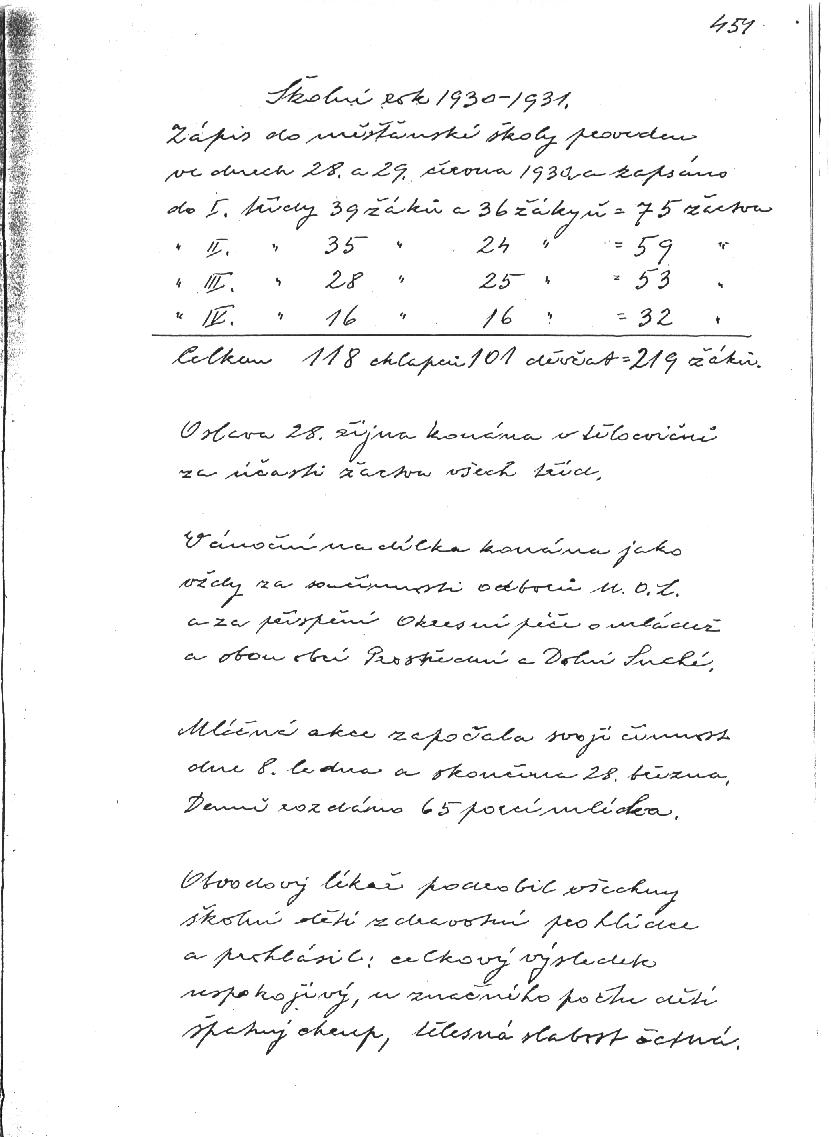 451
Školní rok 1930-1931.
Zápis do měšťánské školy proveden
ve dnech 28. a 29. června 1930 a zapsáno
do I. třídy 39 žáků a 36 žákyň = 75 žactva
" II. " 35 " 24 " = 59 "
" III. " 28 " 25 " = 53 "
" IV. " 16 " 16 " = 32 "
Celkem 118 chlapců 101 děvčat = 219 žáků.
Oslava 28. října konána v tělocvičně
za účasti žactva všech tříd.
Vánoční nadílka konána jako
vždy za součinnosti odborů M.O.L.
a za přispění Okresní péče o mládež
a obou obcí Prostřední a Dolní Suché.
Mléčná akce započala svojí činnost
dne 8. ledna a skončena 28. března.
Denně rozdáno 65 porcí mléka.
Obvodový lékař podrobil všechny
školní děti zdravotní prohlídce
a prohlásil: celkový výsledek
uspokojivý, u značného počtu dětí
špatný chrup, tělesná slabost četná.